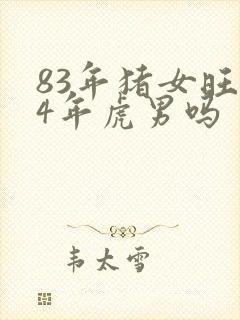 83年猪女旺
4年虎男吗
韦太雪